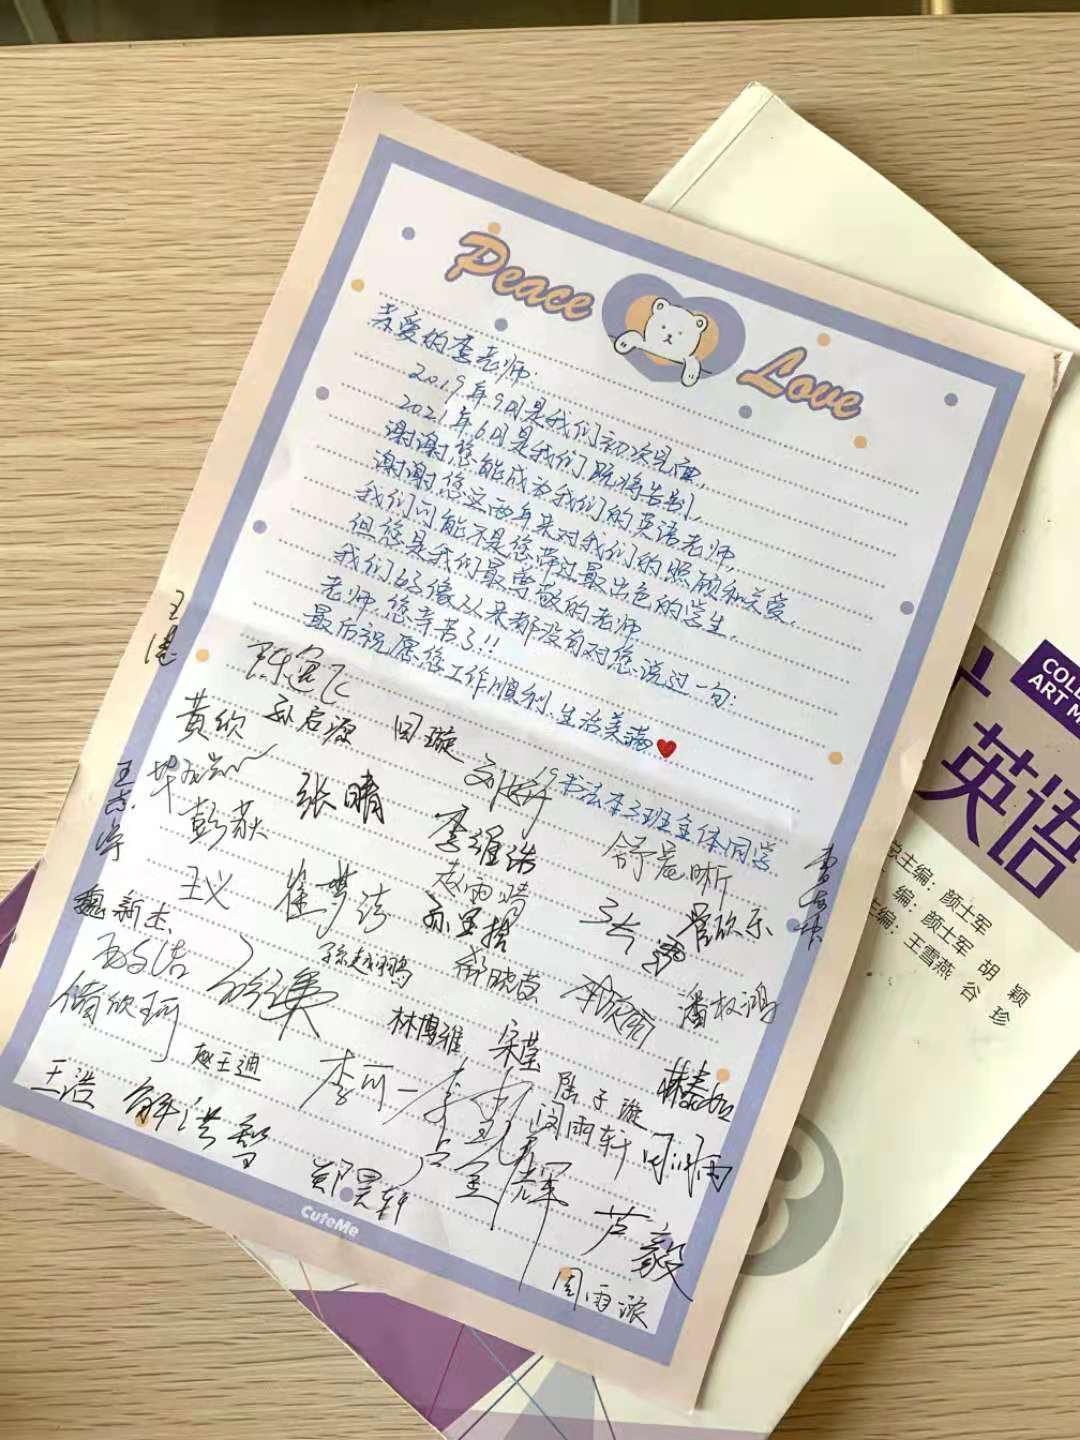 Peace
Love
亲爱的李老师:
2019年9月是我们初次见面,
2021年6月是我们既将告别,
谢谢您能成为我们的英语老师,
谢谢您这两年来对我们的照顾和关爱,
我们可能不是您带过最出色的学生,
但您是我们最尊敬的老师
我们好像从来都没有对您说过一句:
老师 您亲苦了!!
最后祝愿您工作顺利、生活美满
19书法本3班全体同学
王湛
黄欣
孙启源
田璇
张晴
彭荻
舒晨晰
王义
崔梦诗
赵雨晴
管欣乐
魏新杰
孙越鹏
舒晓荷
潘权鸿
林博雅
宋莹
赵王迪
李可一
陆子璇
王浩
解洪智
闵雨轩
郑昊轩
卢金辉
芦毅
周雨浓
CuteMe
COLLE
ART M
英语
总主编:颜士军
编:颜士军 胡颖
主编:王雪燕 谷珍
3